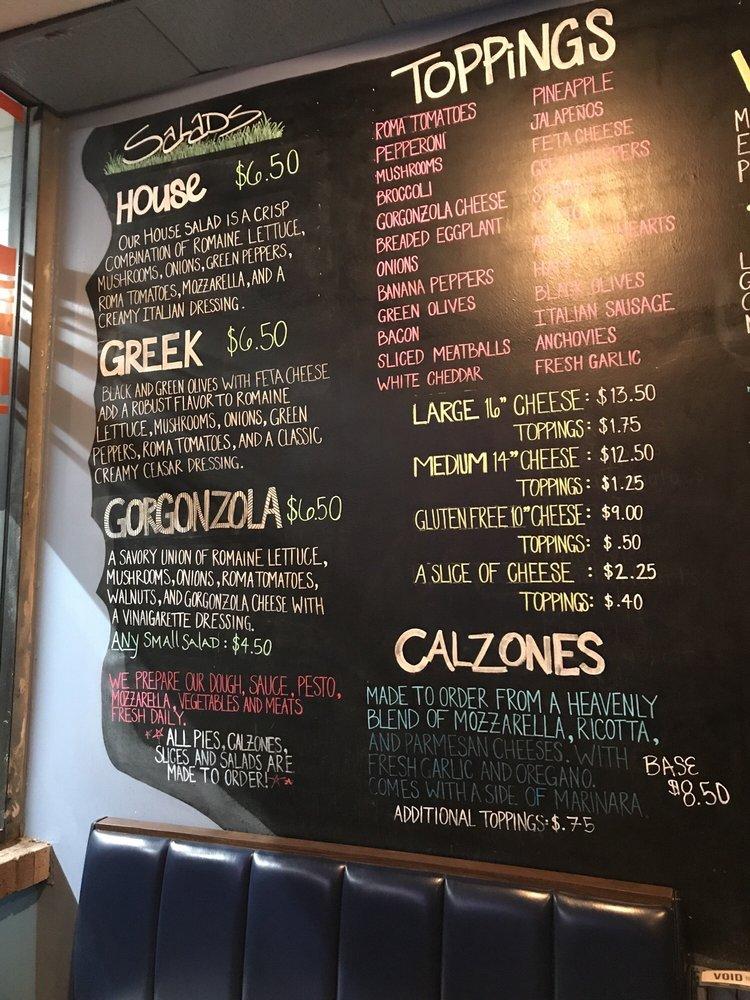 Salads
HOUSE $6.50
OUR HOUSE SALAD IS A CRISP
COMBINATION OF ROMAINE LETTUCE,
MUSHROOMS, ONIONS, GREEN PEPPERS,
ROMA TOMATOES, MOZZARELLA, AND A
CREAMY ITALIAN DRESSING.
GREEK $6.50
BLACK AND GREEN OLIVES WITH FETA CHEESE
ADD A ROBUST FLAVOR TO ROMAINE
LETTUCE, MUSHROOMS, ONIONS, GREEN
PEPPERS, ROMA TOMATOES, AND A CLASSIC
CREAMY CEASAR DRESSING.
GORGONZOLA $6.50
A SAVORY UNION OF ROMAINE LETTUCE,
MUSHROOMS, ONIONS, ROMA TOMATOES,
WALNUTS, AND GORGONZOLA CHEESE WITH
A VINAIGARETTE DRESSING.
ANY SMALL SALAD: $4.50
WE PREPARE OUR DOUGH, SAUCE, PESTO,
MOZZARELLA, VEGETABLES AND MEATS
FRESH DAILY.
ALL PIES, CALZONES,
SLICES AND SALADS ARE
MADE TO ORDER!
TOPPINGS
ROMA TOMATOES
PEPPERONI
MUSHROOMS
BROCCOLI
GORGONZOLA CHEESE
BREADED EGGPLANT
ONIONS
BANANA PEPPERS
GREEN OLIVES
BACON
SLICED MEATBALLS
WHITE CHEDDAR
PINEAPPLE
JALAPEÑOS
FETA CHEESE
GREEN PEPPERS
HEARTS
BLACK OLIVES
ITALIAN SAUSAGE
ANCHOVIES
FRESH GARLIC
LARGE 16" CHEESE: $13.50
TOPPINGS: $1.75
MEDIUM 14" CHEESE: $12.50
TOPPINGS: $1.25
GLUTEN FREE 10" CHEESE: $9.00
TOPPINGS: $.50
A SLICE OF CHEESE : $2.25
TOPPINGS: $.40
CALZONES
MADE TO ORDER FROM A HEAVENLY
BLEND OF MOZZARELLA, RICOTTA,
AND PARMESAN CHEESES. WITH
FRESH GARLIC AND OREGANO.
COMES WITH A SIDE OF MARINARA.
BASE
$8.50
ADDITIONAL TOPPINGS: $.75
VOID